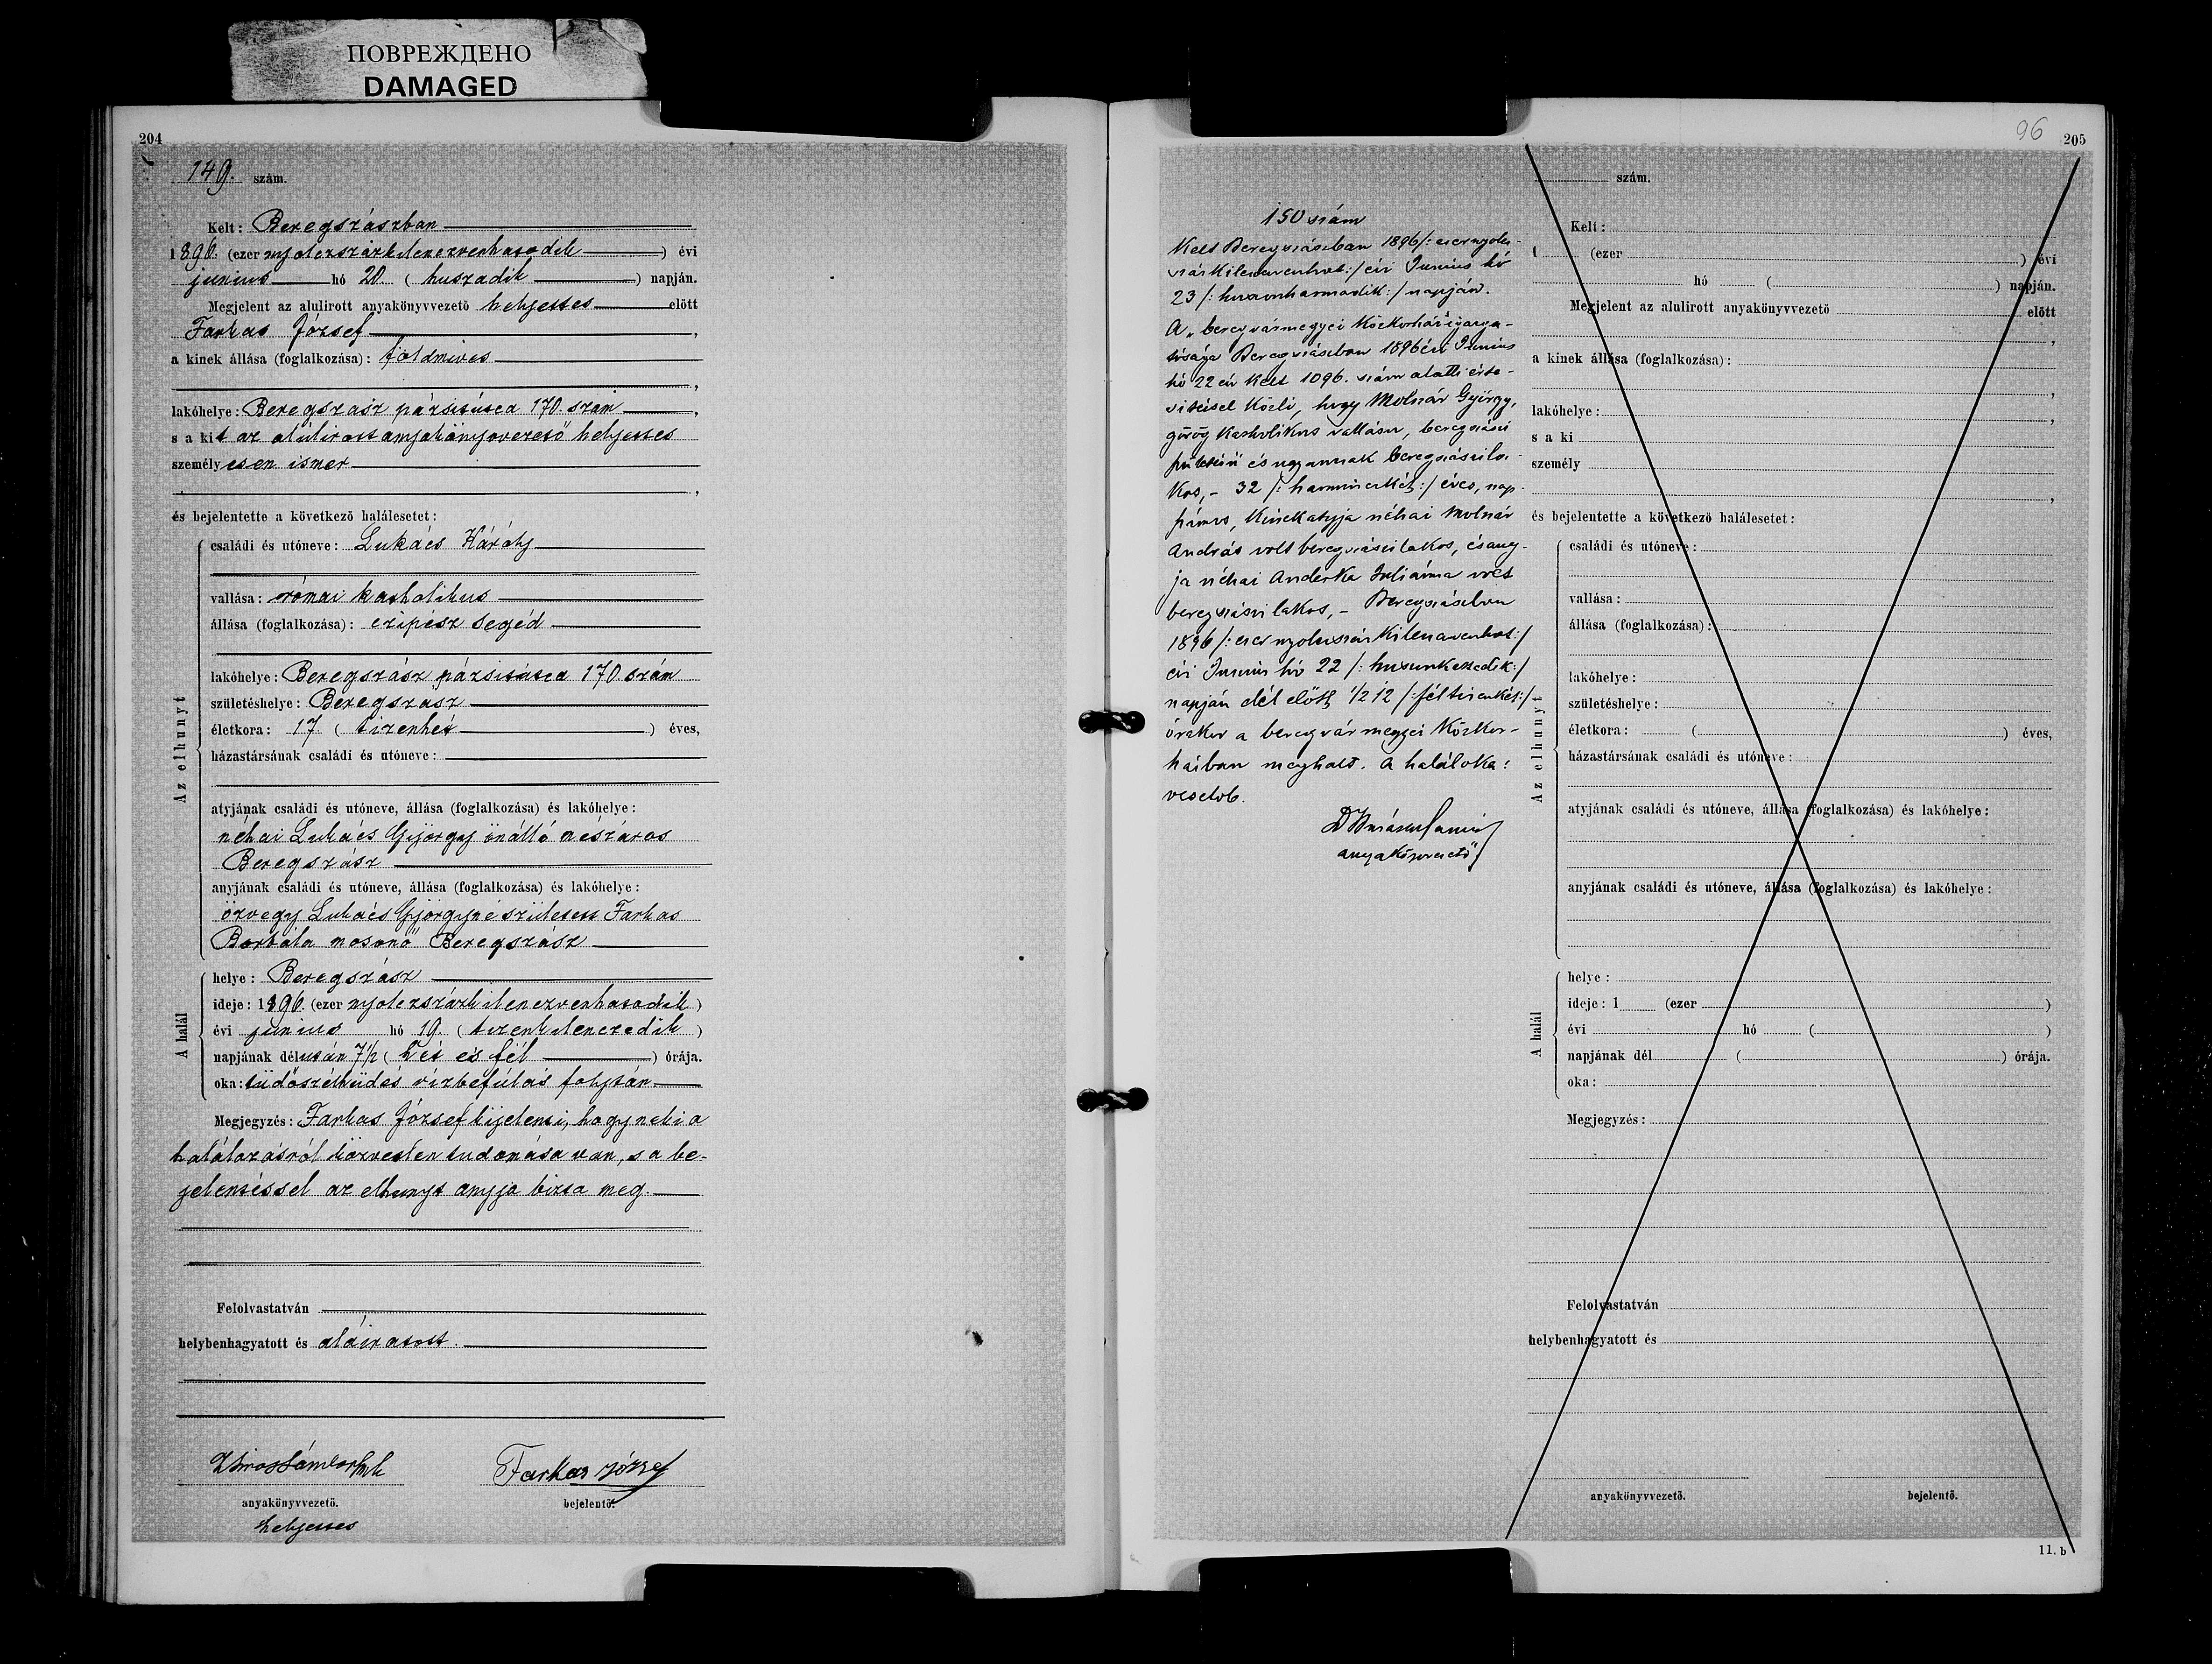 ПОВРЕЖДЕНО
DAMAGED
204
149. szám.
Kelt: Beregszászban
1896. (ezer nyolczszázkilenczvenhatodik) évi
junius hó 20. (huszadik) napján.
Megjelent az alulirott anyakönyvvezető helyettes előtt
Farkas József,
a kinek állása (foglalkozása): földmives
,
lakóhelye: Beregszász pázsitutca 170. szám,
s a kit az alulirott anyakönyvvezető helyettes
személyesen ismer
,
és bejelentette a következő halálesetet:
Az elhunyt
családi és utóneve: Lukács Károly
vallása: római katholikus
állása (foglalkozása): czipész segéd
lakóhelye: Beregszász pázsitutca 170. szám
születéshelye: Beregszász
életkora: 17. (tizenhét) éves,
házastársának családi és utóneve:
atyjának családi és utóneve, állása (foglalkozása) és lakóhelye:
néhai Lukács György önálló mészáros
Beregszász
anyjának családi és utóneve, állása (foglalkozása) és lakóhelye:
özvegy Lukács Györgyné született Farkas
Borbála mosónő Beregszász
A halál
helye: Beregszász
ideje: 1896. (ezer nyolczszázkilenczvenhatodik)
évi junius hó 19. (tizenkilenczedik)
napjának délután 7 1/2 (hét és fél) órája.
oka: tüdőszélhüdés vízbefúlás folytán
Megjegyzés: Farkas József kijelenti, hogy neki a
halálozásról közvetlen tudomása van, s a be-
jelentéssel az elhunyt anyja bizta meg.
Felolvastatván
helybenhagyatott és aláiratott.
Farkas József
anyakönyvvezető. bejelentő.
helyettes
96 205
150 szám
Kelt Beregszászban 1896 /: ezernyolcz-
százkilenczvenhat :/ évi Junius hó
23 /: huszonharmadik :/ napján.
A „beregvármegyei közkórház" igazga-
tósága Beregszászban 1896 évi Junius
hó 22 én kelt 1096. szám alatti érte-
sitéssel közli, hogy Molnár György,
görög katholikus vallásu, beregszászi
születésű és ugyannak beregszászi la-
kos, - 32 /: harminczkét :/ éves, nap-
számos, kinek atyja néhai Molnár
András volt beregszászi lakos, és any-
ja néhai Anderka Juliánna volt
beregszászi lakos, - Beregszászban
1896 /: ezernyolczszázkilenczvenhat :/
évi Junius hó 22 /: huszonkettedik :/
napján dél előtt 1/2 12 /: féltizenkét :/
órakor a beregvármegyei közkór-
házban meghalt. A halál oka:
veselob.
anyakönyvvezető
szám.
Kelt:
1 (ezer ) évi
hó ( ) napján.
Megjelent az alulirott anyakönyvvezető előtt
,
a kinek állása (foglalkozása):
,
lakóhelye: ,
s a ki
személy
,
és bejelentette a következő halálesetet:
Az elhunyt
családi és utóneve:
vallása:
állása (foglalkozása):
lakóhelye:
születéshelye:
életkora: ( ) éves,
házastársának családi és utóneve:
atyjának családi és utóneve, állása (foglalkozása) és lakóhelye:
anyjának családi és utóneve, állása (foglalkozása) és lakóhelye:
A halál
helye:
ideje: 1 (ezer )
évi hó ( )
napjának dél ( ) órája.
oka:
Megjegyzés:
Felolvastatván
helybenhagyatott és
anyakönyvvezető. bejelentő.
11. b